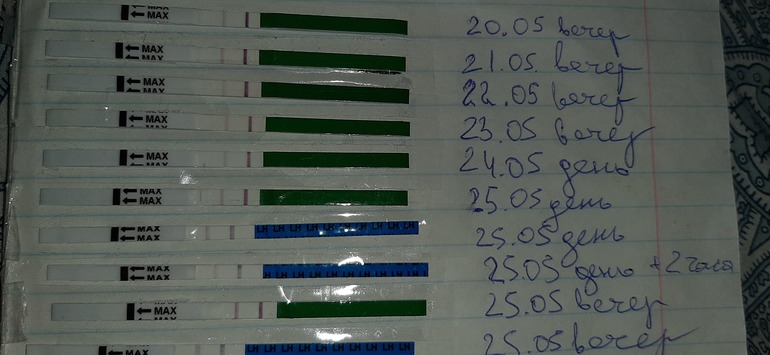 MAX 20.05 вечер
MAX
MAX 21.05 вечер
MAX
MAX 22.05 вечер
MAX
MAX 23.05 вечер
MAX 24.05 день
MAX
MAX 25.05 день
MAX
MAX LH LH LH LH LH LH LH LH LH 25.05 день
MAX
MAX LH LH LH LH LH LH LH LH LH 25.05 день + 2 часа
MAX
MAX 25.05 вечер
MAX LH LH LH LH LH LH LH LH LH 25.05 вечер